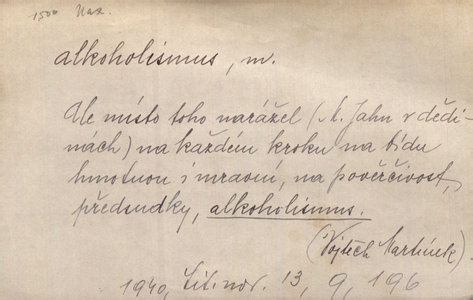 1500 Nar.
alkoholismus, m.
Ale místo toho narážel (A. Jahn v dědi-
nách) na každém kroku na bídu
hmotnou i mravní, na pověrčivost,
předsudky, alkoholismus.
(Vojtěch Martínek)
1940, Lit. nov. 13, 9, 196